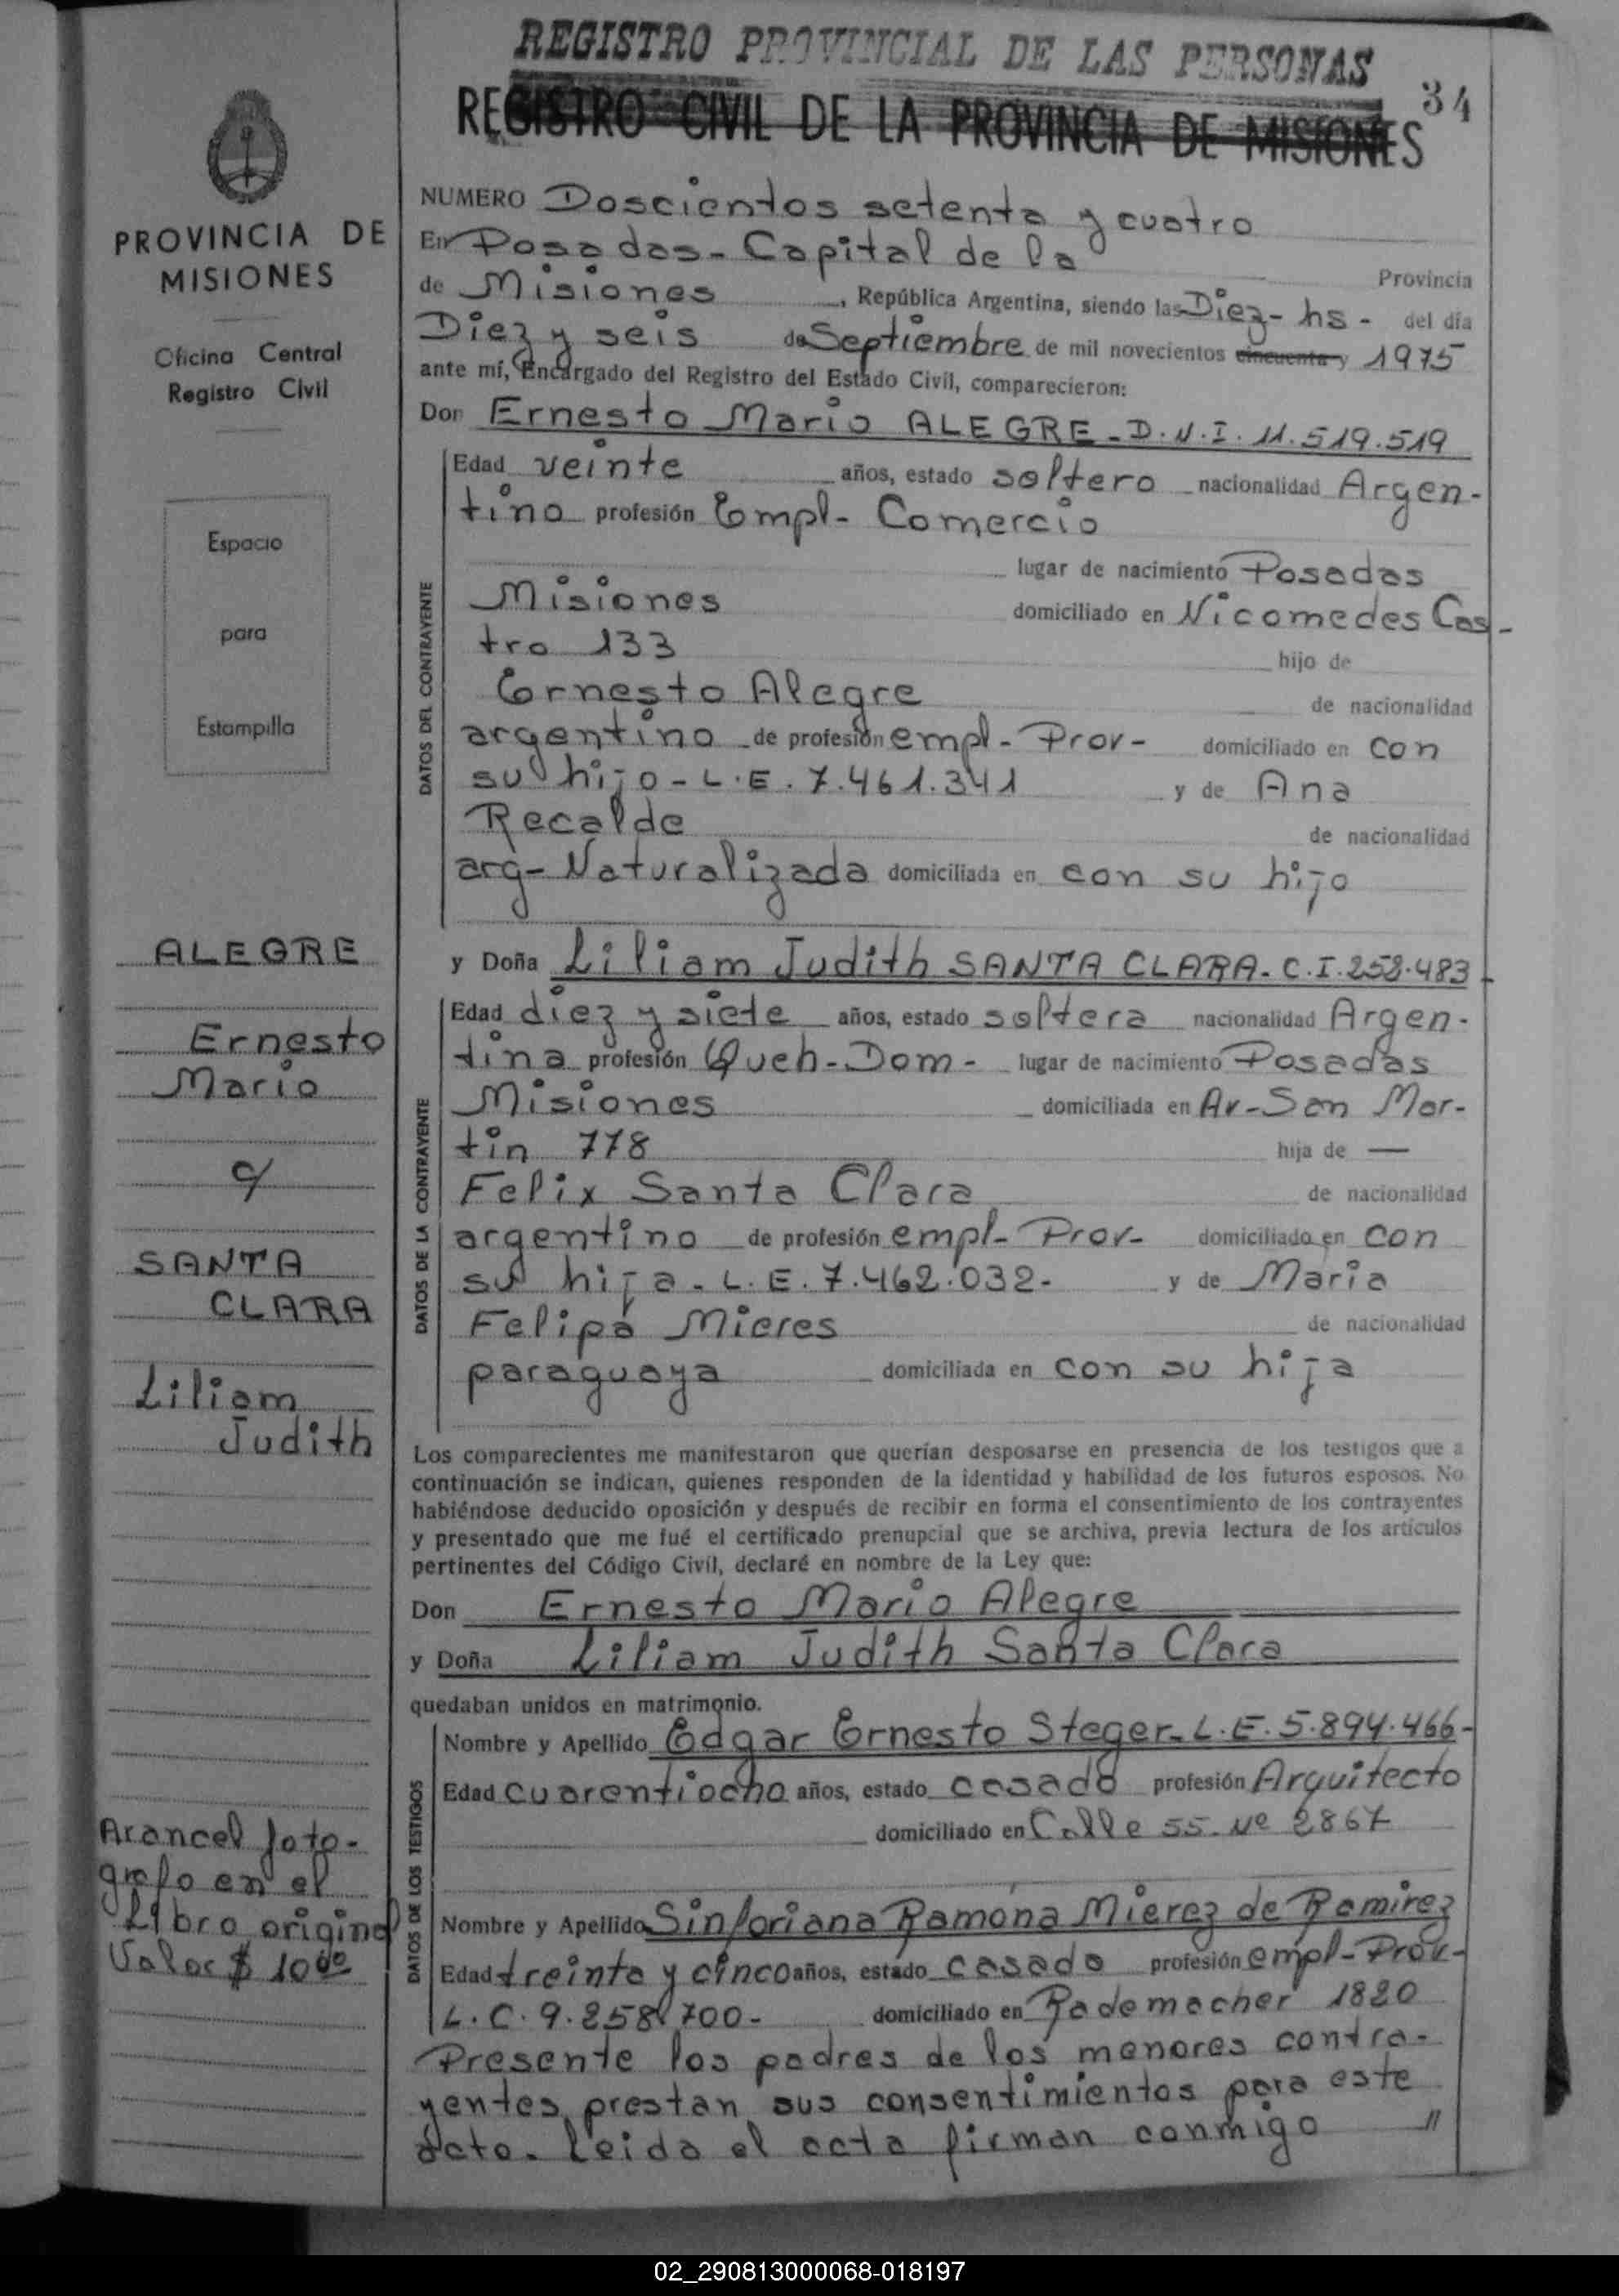 REGISTRO PROVINCIAL DE LAS PERSONAS
34
REGISTRO CIVIL DE LA PROVINCIA DE MISIONES
PROVINCIA DE
MISIONES
Oficina Central
Registro Civil
Espacio
para
Estampilla
ALEGRE
Ernesto
Mario
c/
SANTA
CLARA
Liliam
Judith
Arancel foto-
grafo en el
Libro original
Valor $ 10 00
NUMERO Doscientos setenta y cuatro
En Posadas - Capital de la Provincia
de Misiones, República Argentina, siendo las Diez - hs - del día
Diez y seis de Septiembre de mil novecientos cincuenta y 1975
ante mí, Encargado del Registro del Estado Civil, comparecieron:
Don Ernesto Mario ALEGRE - D.N.I. 11.519.519
DATOS DEL CONTRAYENTE
Edad veinte años, estado soltero nacionalidad Argen-
tino profesión Empl - Comercio
lugar de nacimiento Posadas
Misiones domiciliado en Nicomedes Cas-
tro 133 hijo de
Ernesto Alegre de nacionalidad
argentino de profesión empl - Prov - domiciliado en con
su hijo - L.E. 7.461.341 y de Ana
Recalde de nacionalidad
arg - Naturalizada domiciliada en con su hijo
y Doña Liliam Judith SANTA CLARA - C.I. 258.483 -
DATOS DE LA CONTRAYENTE
Edad diez y siete años, estado soltera nacionalidad Argen-
tina profesión Queh - Dom - lugar de nacimiento Posadas
Misiones domiciliada en Av - San Mar-
tin 778 hija de —
Felix Santa Clara de nacionalidad
argentino de profesión empl - Prov - domiciliado en con
su hija - L.E. 7.462.032 - y de Maria
Felipa Mieres de nacionalidad
paraguaya domiciliada en con su hija
Los comparecientes me manifestaron que querían desposarse en presencia de los testigos que a
continuación se indican, quienes responden de la identidad y habilidad de los futuros esposos. No
habiéndose deducido oposición y después de recibir en forma el consentimiento de los contrayentes
y presentado que me fué el certificado prenupcial que se archiva, previa lectura de los artículos
pertinentes del Código Civil, declaré en nombre de la Ley que:
Don Ernesto Mario Alegre
y Doña Liliam Judith Santa Clara
quedaban unidos en matrimonio.
DATOS DE LOS TESTIGOS
Nombre y Apellido Edgar Ernesto Steger - L.E. 5.894.466 -
Edad cuarentiocho años, estado casado profesión Arquitecto
domiciliado en Calle 55 - Nº 2867
Nombre y Apellido Sinforiana Ramona Mierez de Ramirez
Edad treinta y cinco años, estado casado profesión empl - Prov -
L.C. 9.258.700 - domiciliado en Rademacher 1820
Presente los padres de los menores contra-
yentes, prestan sus consentimientos para este
acto. Leida el acta firman conmigo //
02_290813000068-018197